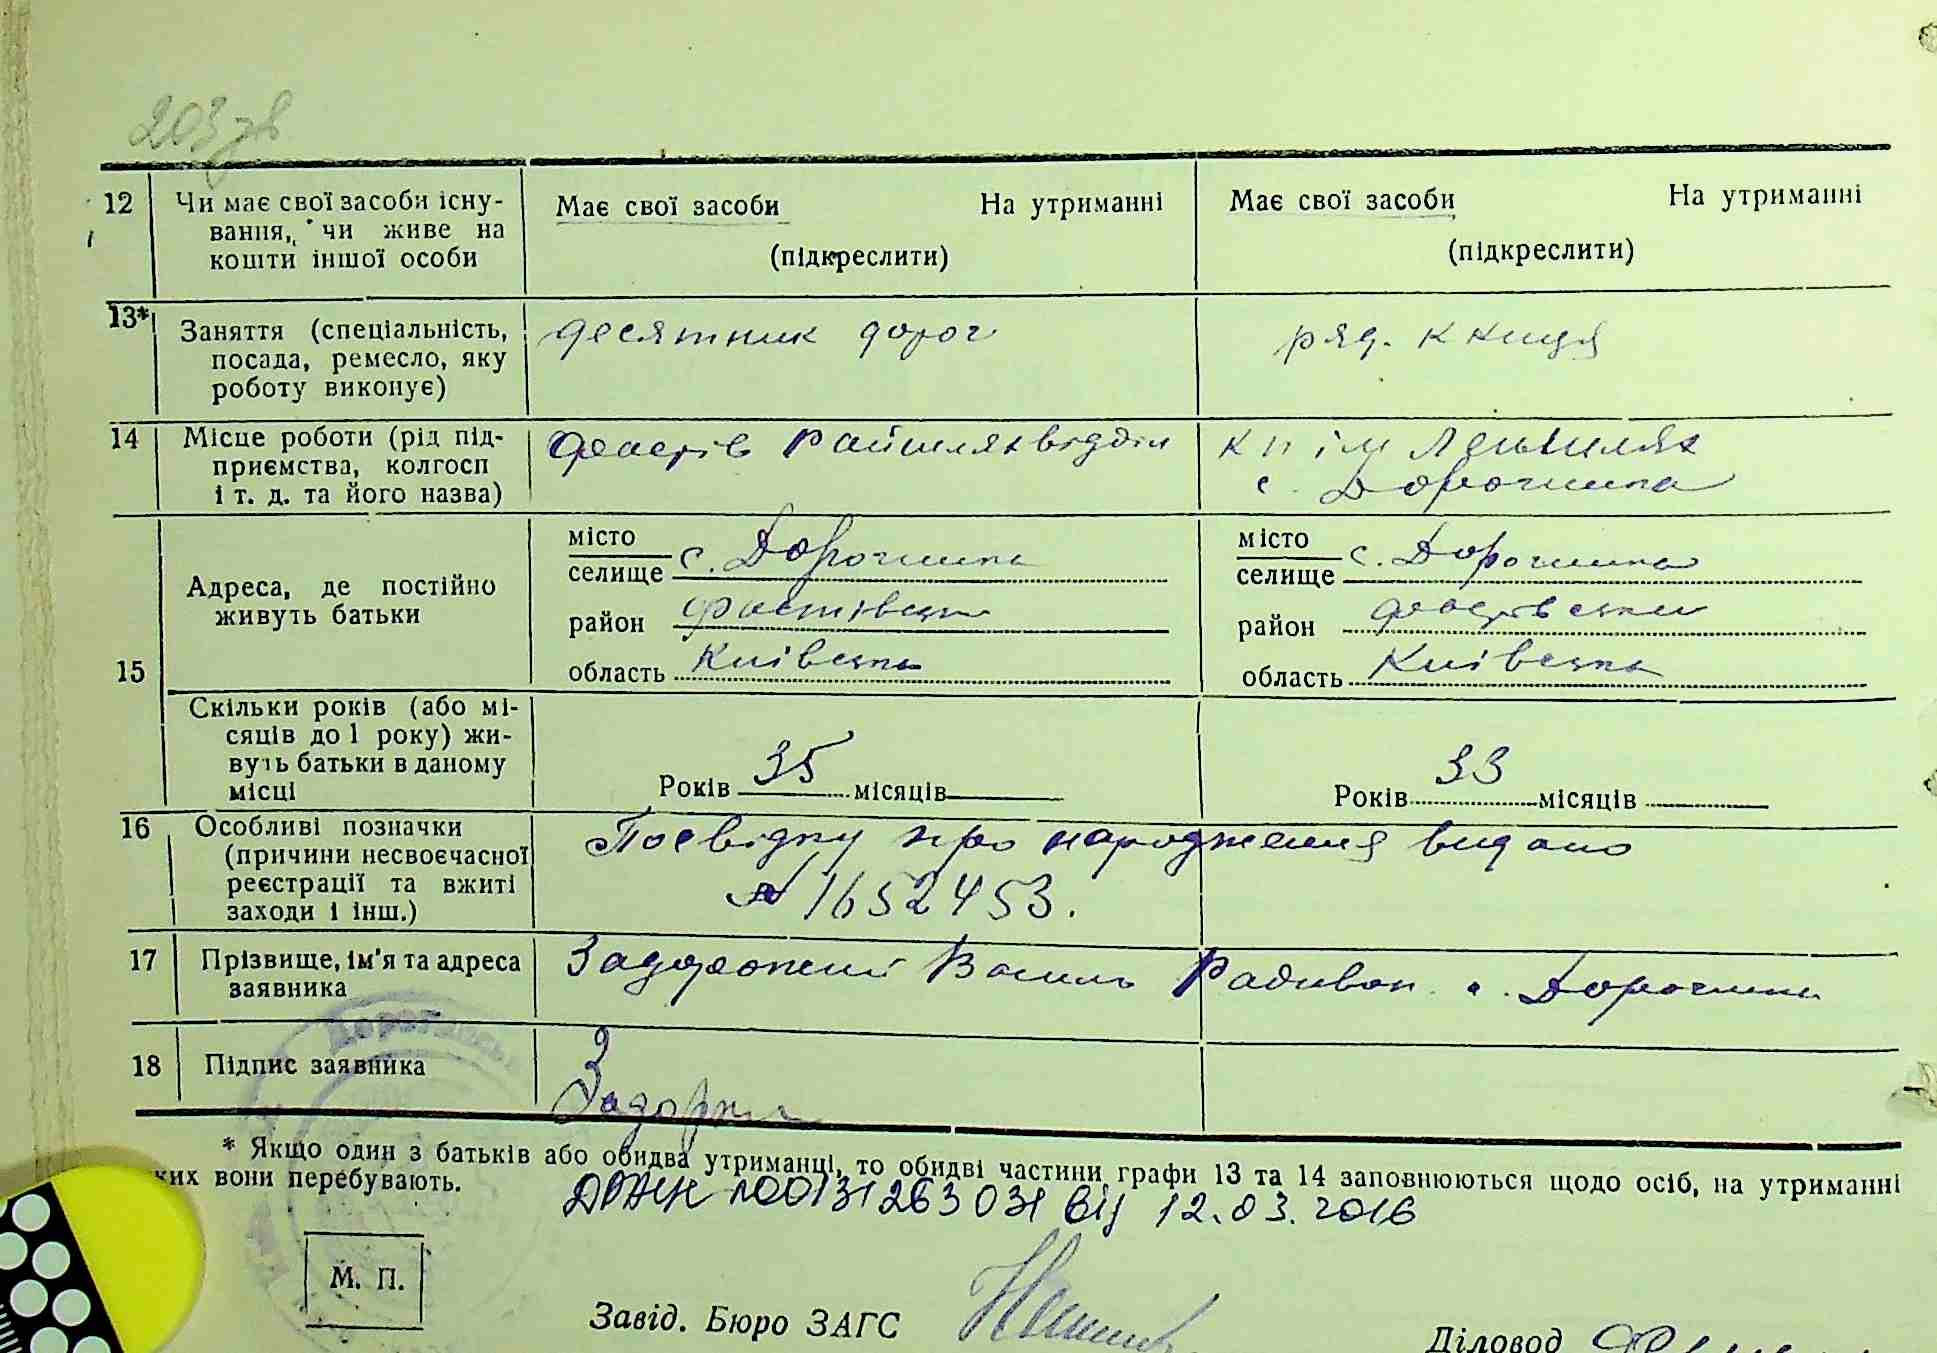 203 зв
12 Чи має свої засоби існу-
вання, чи живе на
кошти іншої особи
Має свої засоби На утриманні
(підкреслити)
Має свої засоби На утриманні
(підкреслити)
13* Заняття (спеціальність,
посада, ремесло, яку
роботу виконує)
десятник дорог
ряд. к
14 Місце роботи (рід під-
приємства, колгосп
і т. д. та його назва)
Фастів Райшляхвідділ
к п ім
с. Дорогинка
15 Адреса, де постійно
живуть батьки
місто
селище с. Дорогинка
район Фастівськ
область Київська
місто
селище с. Дорогинка
район Фастівськи
область Київська
Скільки років (або мі-
сяців до 1 року) жи-
вуть батьки в даному
місці
Років 35 місяців
Років 33 місяців
16 Особливі позначки
(причини несвоєчасної
реєстрації та вжиті
заходи і інш.)
Посвідку про народження видано
№ 1652453.
17 Прізвище, ім'я та адреса
заявника
Задорожний Василь Радивон. с. Дорогинка
18 Підпис заявника
З
* Якщо один з батьків або обидва утриманці, то обидві частини графи 13 та 14 заповнюються щодо осіб, на утриманні
ких вони перебувають.
00131263031 від 12.03.2016
М. П.
Завід. Бюро ЗАГС
Діловод